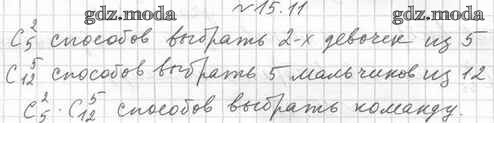 №15.11
gdz.moda gdz.moda
C₅² способов выбрать 2-х девочек из 5
C₁₂⁵ способов выбрать 5 мальчиков из 12
C₅² · C₁₂⁵ способов выбрать команду.